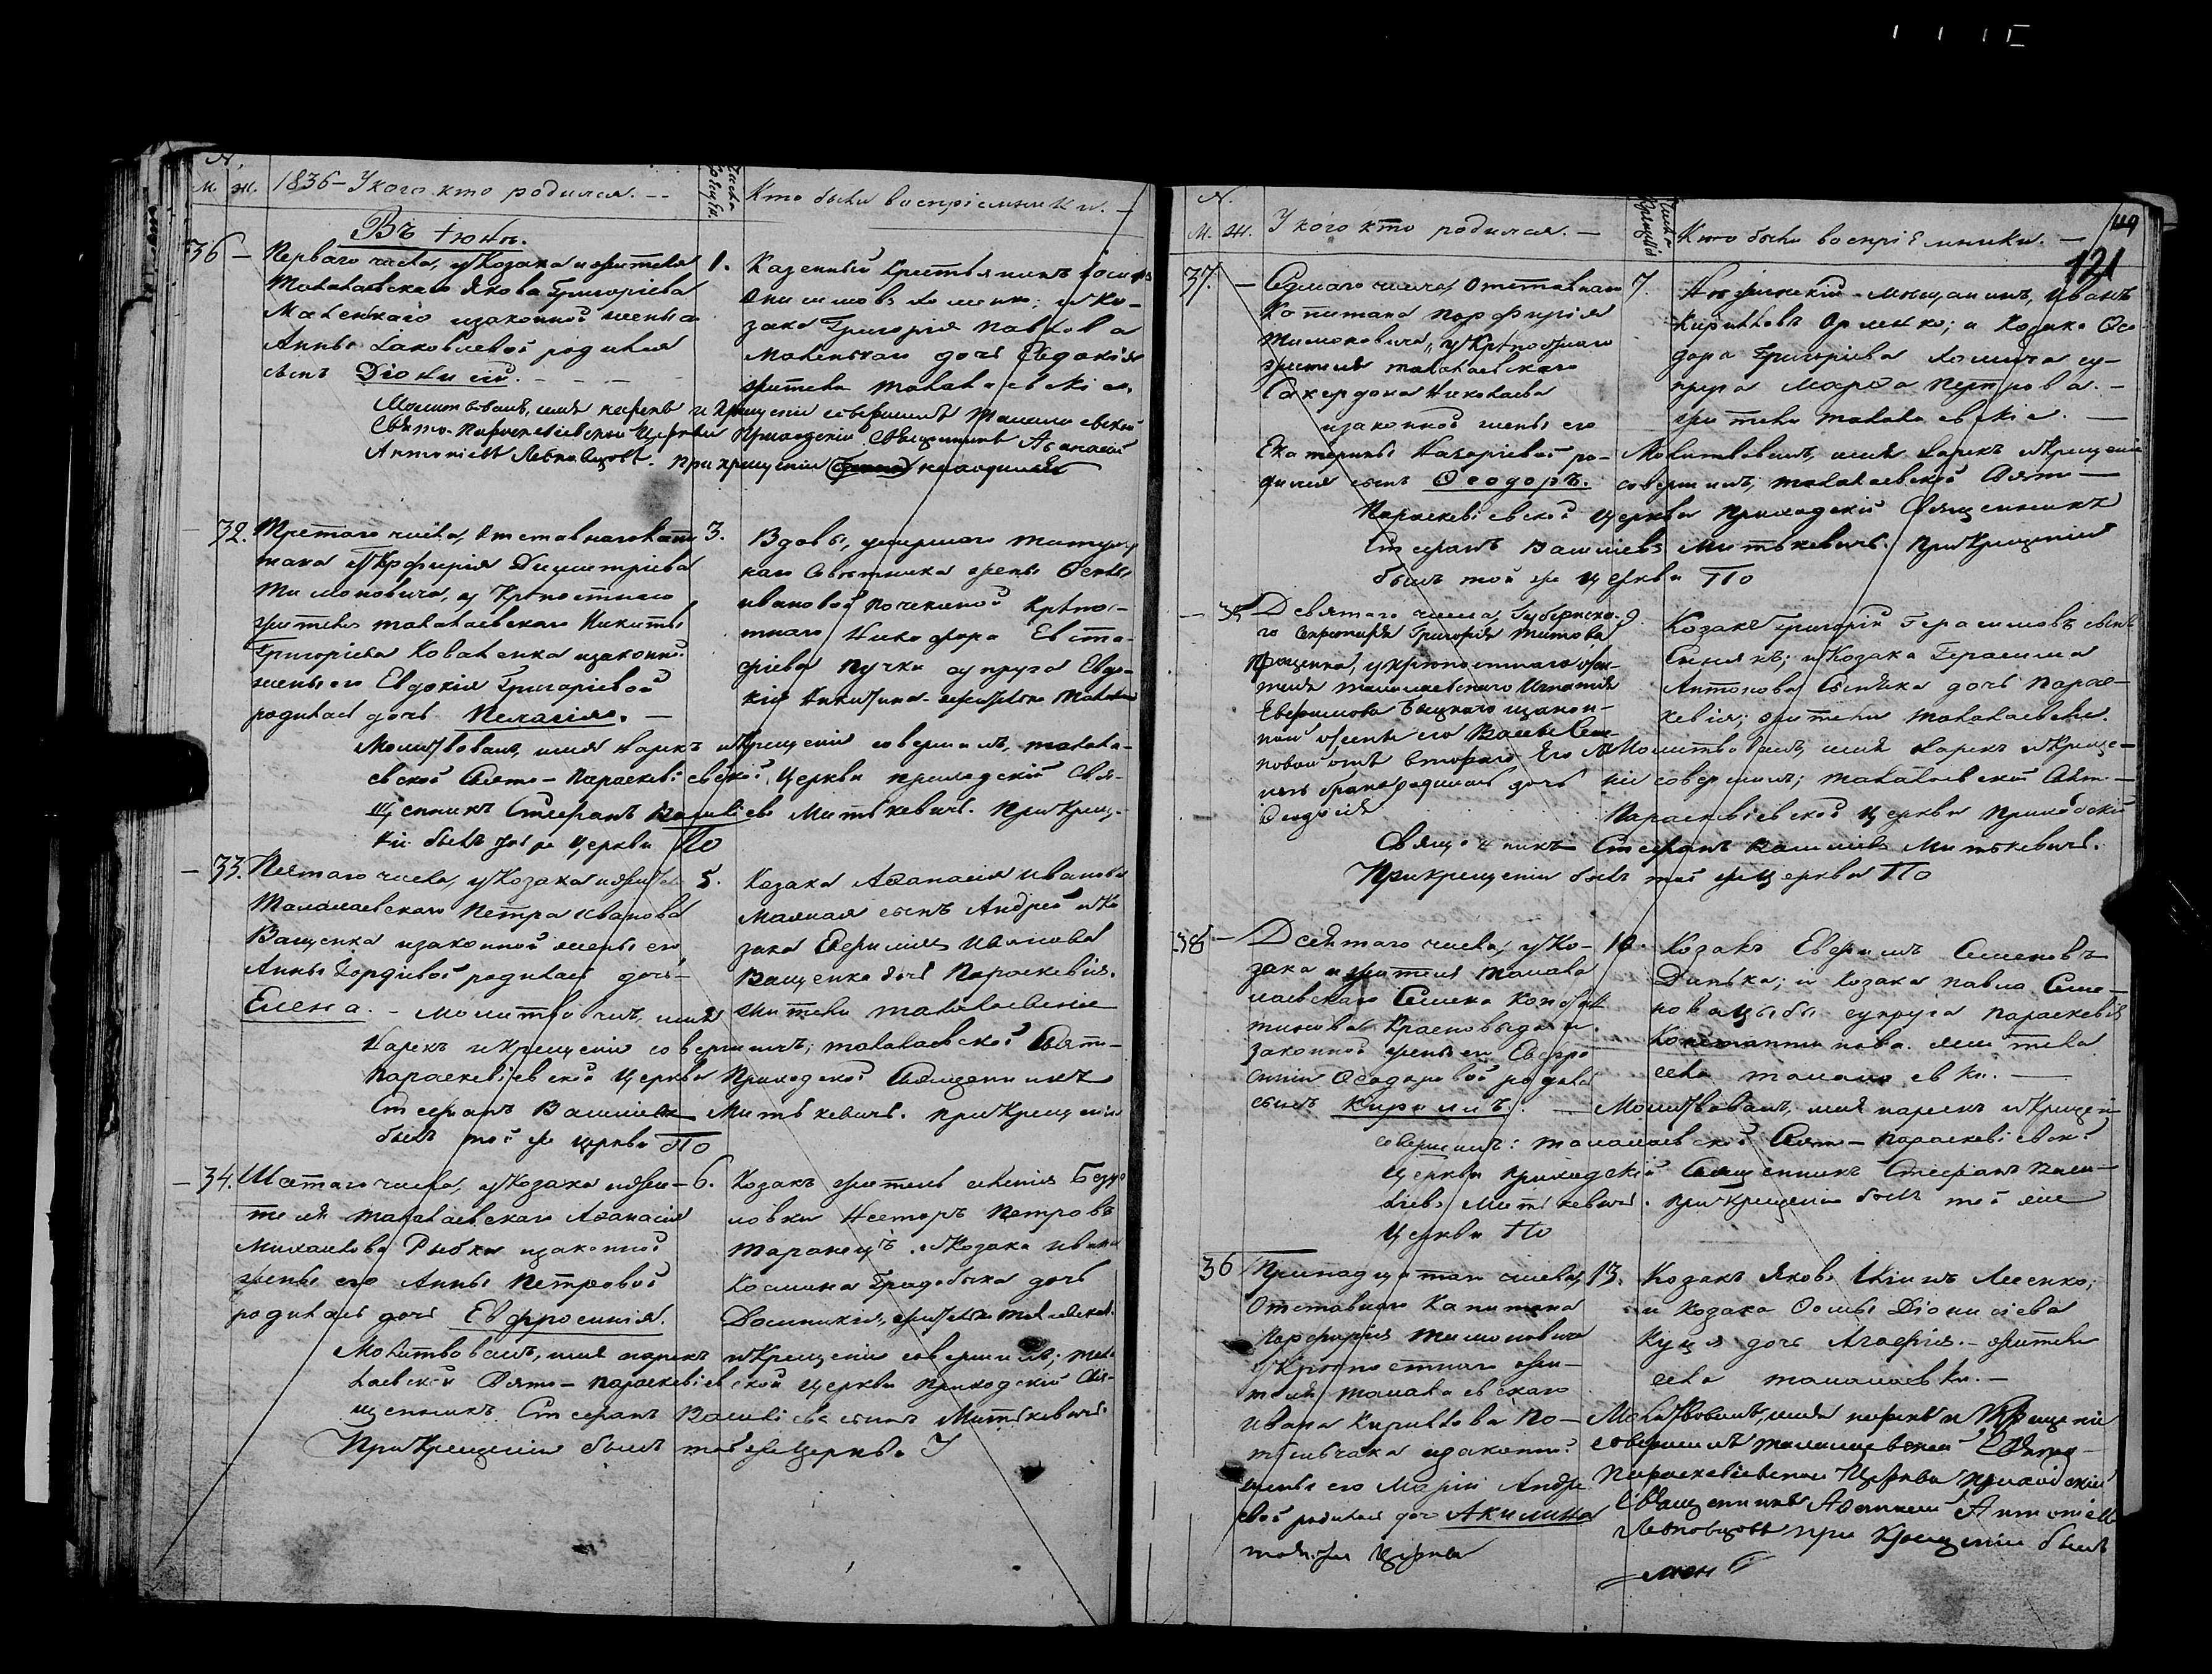 М. Ж. 1836 – У кого кто родился. -- Число крещен. Кто были воспріемники. –
Въ Іюнѣ.
36 – Перваго числа, у Козака и жителя
Талалаевскаго Якова Григоріева
Маленкаго изаконной жены его
Анны Іаковлевой родился
сынъ Діонисій. - - -
1. Казенный Крестьянинъ
Онисимовъ Хоменко; и Ко-
зака Григорія Павлова
Маленькаго дочь Евдокія
жители талалаевскіе.
Молитвовалъ, имя нарекъ и Крещеніе совершилъ Талалаевской
Свято-Параскевіевской Церкви Приходскій Священникъ Аѳанасій
Антоніевъ при крещеніи находился
32. Третаго числа, Отставнаго Капи
тана Порфирія Димитріева
Тимоновича, у Крѣпостнаго
жителя талалаевскаго Никиты
Григоріева Коваленка изаконной
жены его Евдокіи Григоріевой
родилась дочь Пелагія. –
3. Вдовы, умершаго титуляр
наго Совѣтника жены
Ивановой Почекиной Крѣпос-
тнаго Никифора Евста-
фіева Пучки супруга Евдо-
кія Никитина - жители талалаев
Молитвовалъ, имя нарекъ и Крещеніе совершилъ, талала-
евской Свято-Параскевіевской Церкви приходскій Свя-
щенникъ Стефанъ Василіевъ Митькевичь. При Креще-
ніи былъ той же Церкви По
– 33. Пятаго числа, у Козака и жителя
Талалаевскаго Петра Иванова
Ващенка изаконной жены его
Анны Гордѣевой родилась дочь
Елена. –
5. Козака Аѳанасія Иванова
сынъ Андрей и Ко
зака Ефимія Иванова
Ващенка дочь Параскевія.
жители талалаевскіе
Молитвовалъ, имя
Нарекъ и Крещеніе совершилъ; талалаевской Свято-
параскевіевской Церкви Приходской Священникъ
Стефанъ Василіевъ Митькевичь. при Крещеніи
былъ той же церкви По
– 34. Шестаго числа, у Козака и жи-
теля талалаевскаго Аѳанасія
Михайлова Рыбки изаконной
жены его Анны Петровой
родилась дочь Евфросинія.
6. Козакъ житель имѣнія
ловки Несторъ Петровъ
Таранецъ. и Козака Ивана
Космина дочь
Домникія, жители талалаевскіе
Молитвовалъ, имя нарекъ и Крещеніе совершилъ; тала
лаевской Свято-параскевіевской Церкви Приходскій Свя-
щенникъ Стефанъ Василіевъ сынъ Митькевичь.
При Крещеніи былъ той же Церкви
М. Ж. У кого кто родился. – Число Крещенія Кто были воспріемники. –
119
121
37. – Седмаго числа, Отставнаго
Капитана Порфирія
Тимоновича, у Крѣпостнаго
жителя талалаевскаго
Сакердона Николаева
изаконной жены его
Екатерины Назаріевой ро-
дился сынъ Ѳеодоръ.
7. Нѣжинскій Мѣщанинъ, Иванъ
Кириловъ; и Козака Ѳео
дора Григоріева Хомича су-
пруга Марѳа Петрова. –
жители талалаевскіе. –
Молитвовалъ, имя нарекъ и Крещеніе
совершилъ, талалаевской Свято –
Параскевіевской Церкви Приходскій Священникъ
Стефанъ Василіевъ Митькевичь. При Крещеніи
былъ той же Церкви По
– 35 Девятаго числа, Губернска-
го Секретаря Григорія Титова
у крѣпостнаго жи-
теля талалаевскаго Игнатія
Ефимова изакон-
ной жены его
новой отъ втораго его
дочь
Ѳеодосія
9. Козакъ Григорій Герасимовъ сынъ
Синякъ; и Козака Герасима
Антонова Синяка дочь Парас-
кевія; жители талалаевскіе.
Молитвовалъ, имя нарекъ и Креще-
ніе совершилъ; талалаевской Свято-
Параскевіевской Церкви Приходскій
Священникъ Стефанъ Василіевъ Митькевичь.
При крещеніи былъ той же Церкви По
38 – Десятаго числа, у Ко-
зака и жителя Талала
лаевскаго Семена Констан
тинова
законной жены его Евфро
синіи Ѳеодоровой родился
сынъ Кирилъ.
10. Козакъ Ефимъ Семеновъ
Динька; и Козака Павла Семе-
нова Цыбы супруга Параскевія
Константинова. жители
села талалаевки. –
Молитвовалъ, имя нарекъ и Крещен
совершилъ: талалаевской Свято-параскевіевской
Церкви приходскій Священникъ Стефанъ Васи-
ліевъ Митькевичь. при крещеніи былъ той же
Церкви По
36 Тринадцатаго числа,
Отставнаго Капитана
Порфирія Тимоновича
у Крѣпостнаго жи-
теля талалаевскаго
Ивана Кирилова По-
изаконной
жены его Маріи Андре
евой родилась дочь Акилина
13. Козакъ Яковъ Лесенко;
и Козака Ѳомы Діонисіева
Куця дочь Агафія. – жители
села талалаевки. –
Молитвовалъ, имя нарекъ и Крещеніе
совершилъ талалаевской Свято-
Параскевіевской Церкви приходскій
Священникъ Аѳанасій Антоніевъ
при Крещеніи былъ
той же Церкви